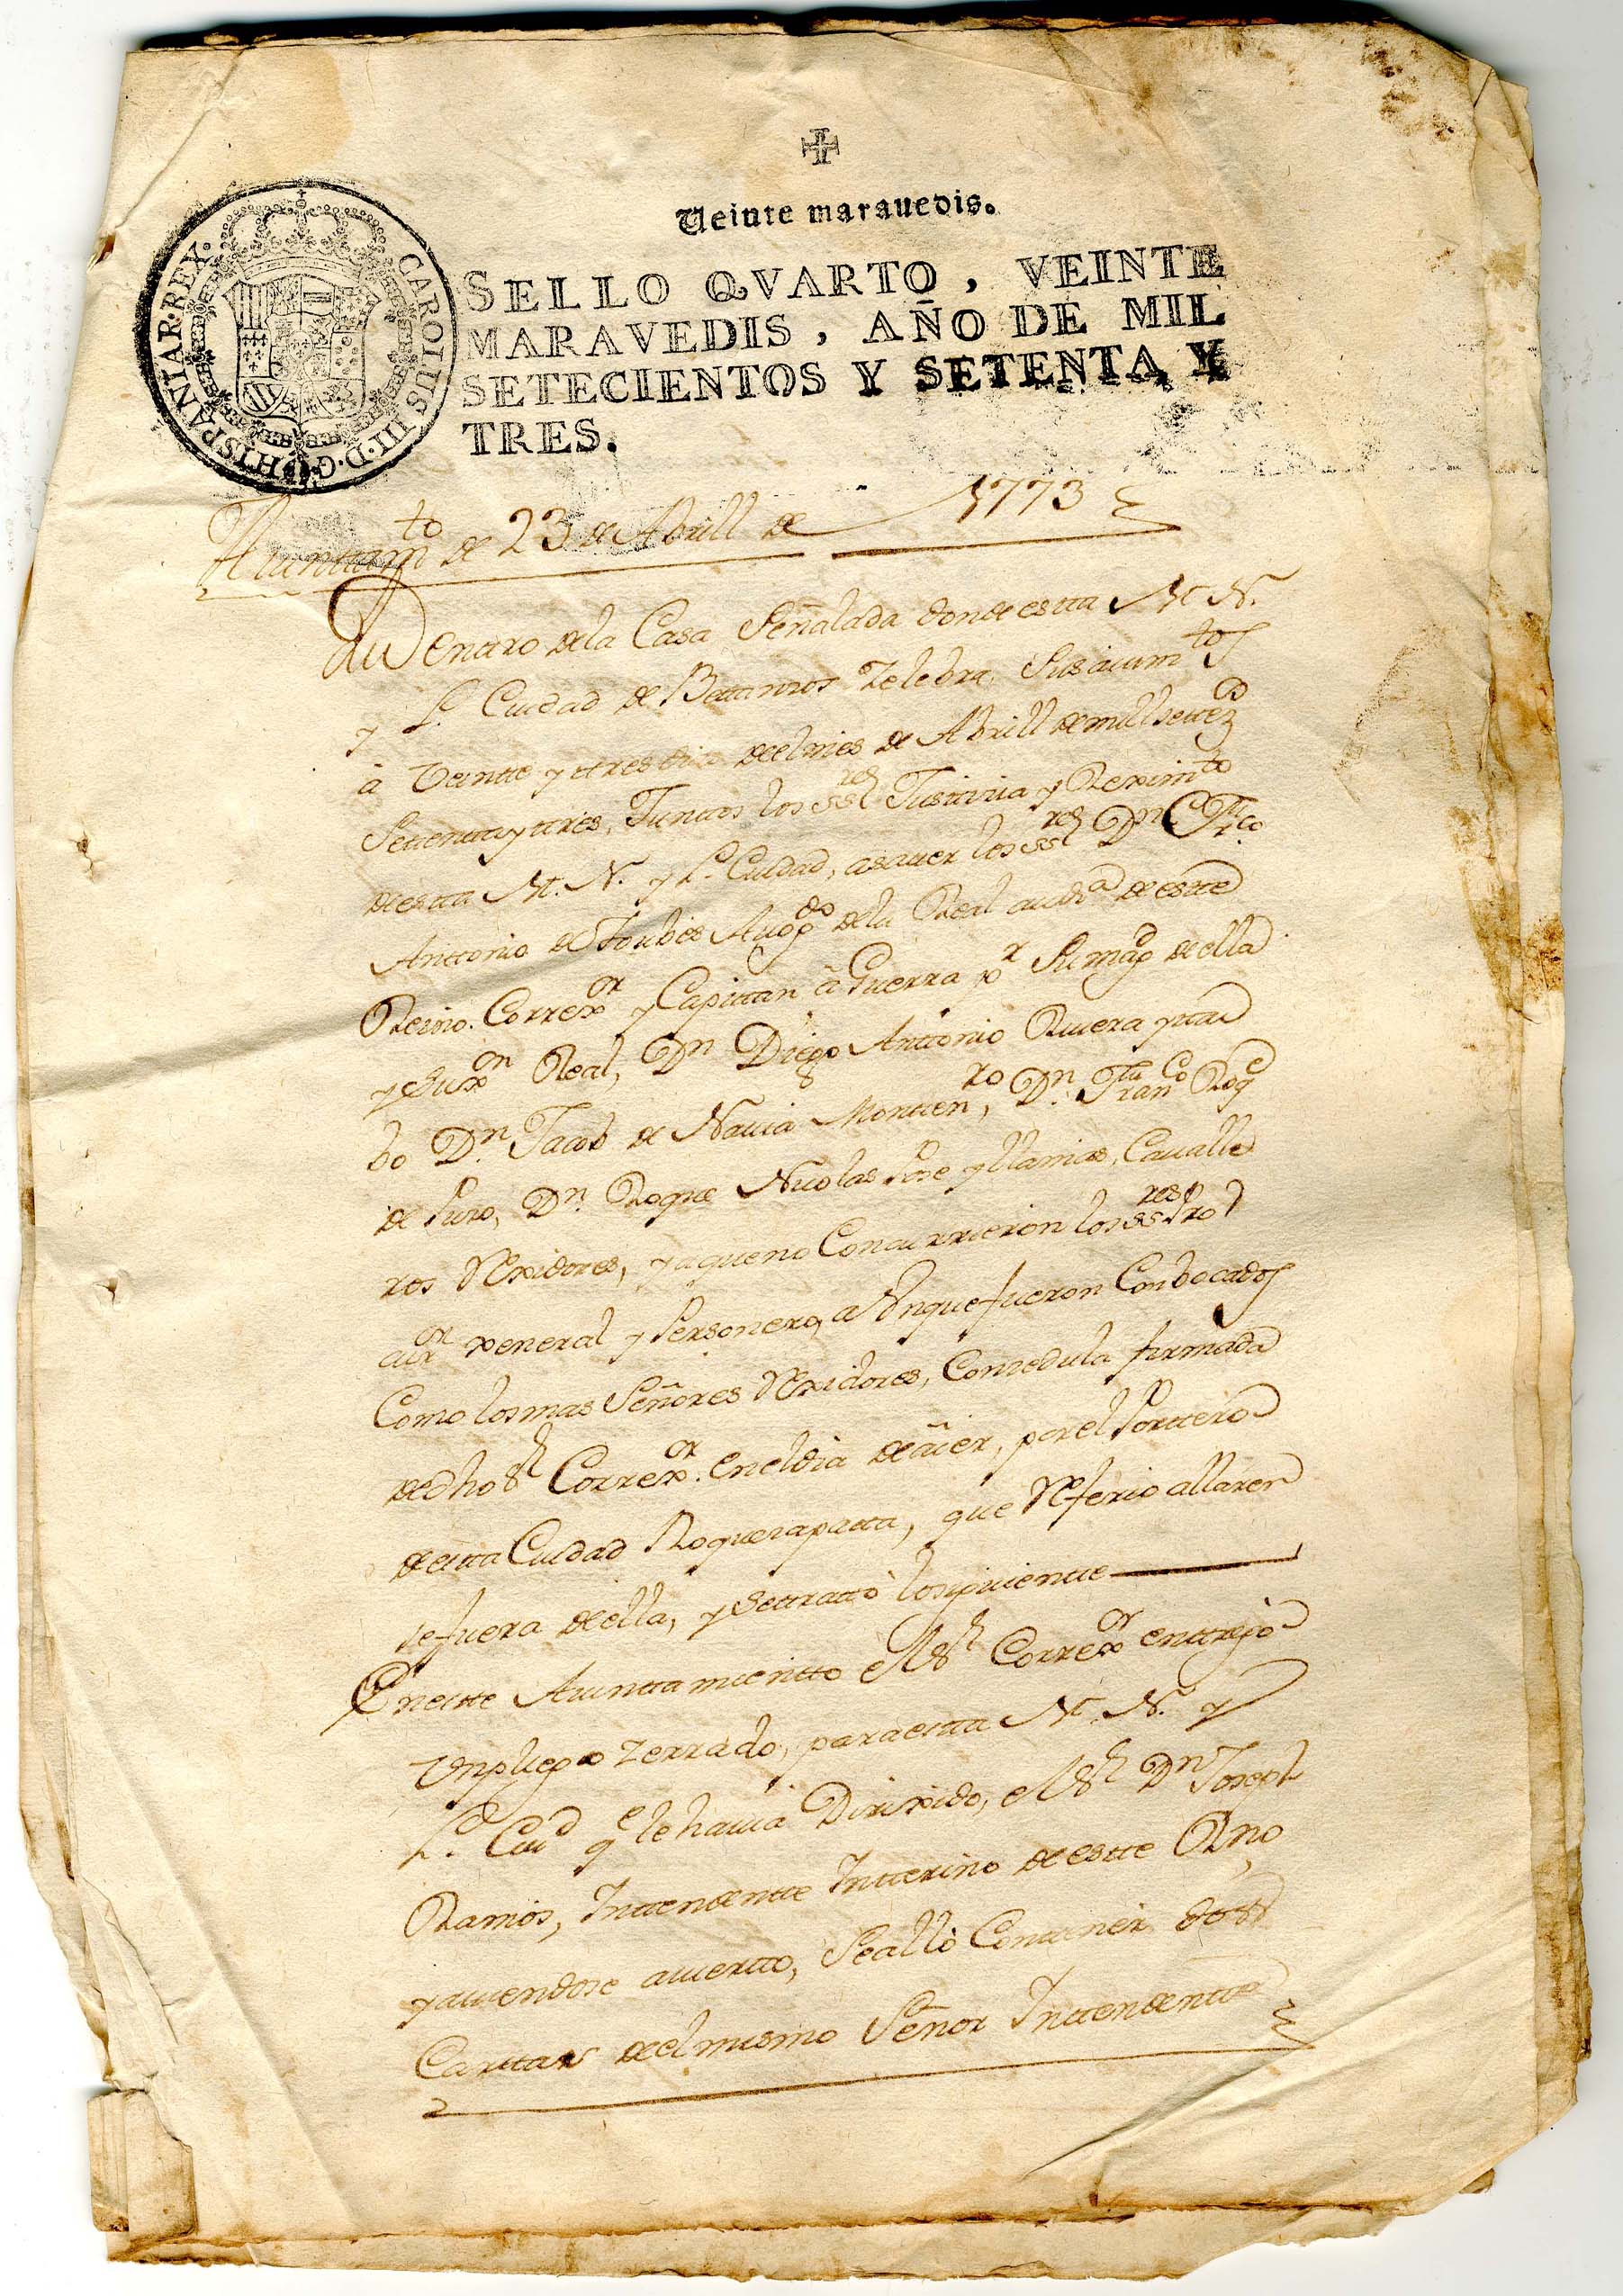 Veinte marauedis.
CAROLUS III·D·G·HISPANIAR·REX·
SELLO QVARTO, VEINTE
MARAVEDIS, AÑO DE MIL
SETECIENTOS Y SETENTA Y
TRES.
Aiunttamto de 23 de Abrill de 1773
Dentro de la Casa Señalada donde estta M. N.
y L. Ciudad de Bettanzos Zelebra, Sus aiumtos
à Veintte y ttres dias del mes de Abrill de mill settez
Settentta y ttres, Junttos los ssres Justticia y Reximto
de estta M. N. y L. Ciudad, asauer los ssres Dn
Anttonio de Abogdo de la Real audia de estte
Reino. Correxor y Capittan â Guerra pr Su magd de ella
y Su xon Real, Dn Diego Anttonio Riuera ytta
bo Dn. Jacob de Nauia Montten, ro Dn. Franco Rog
de Puzo, Dn. Roque Nicolas Pose y llamas, Caualle
ros Rexidores, ya que no Concurrieron los ssres Pro
cur xeneral y Personero, a Unque fueron Combocados
Como los mas Señores Rexidores, Con zedula firmada
de dho Sr Correxor. en el dia de âier, por el Porttero
de estta Ciudad Roque zapatta, que Refirio allarsen
se fuera de ella, y se ttratto lo siguientte
En estte Aiunttamientto el Sr Correxor enttregò
Un pliego zerrado, para estta M. N. y
L. Ciud qe le hauia Dirixido, el Sr Dn Joseph
Ramos, Inttendentte Intterino de estte Rno
y auiendose auiertto, Se allò Conttener dos
Carttas del mismo Señor Inttendentte